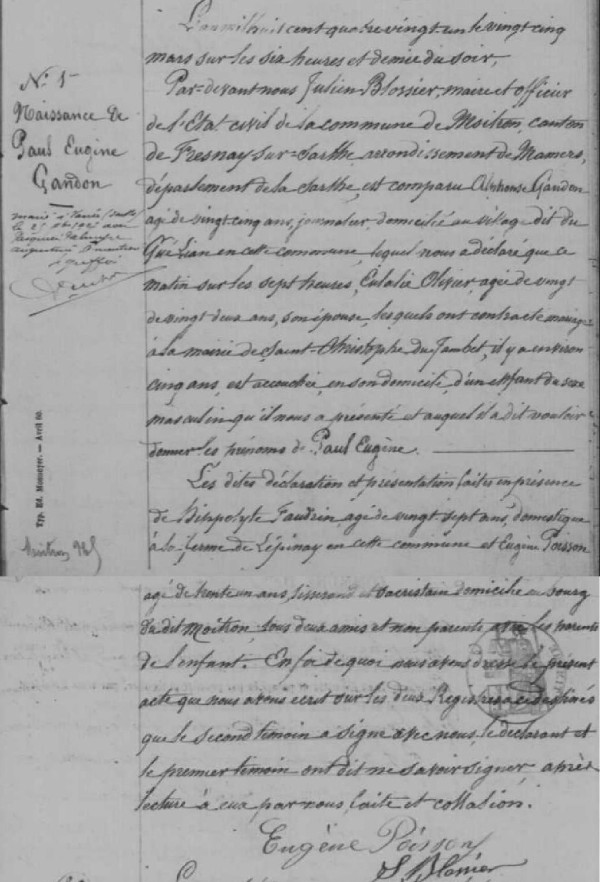 N° 5
Naissance de
Paul Eugène
Gandon
marié à
le 25 1905 avec
le greffier
Typ. Ed. Monnoyer. — Avril 80.
L'an mil huit cent quatre vingt un le vingt cinq
mars sur les six heures et demie du soir,
Par-devant nous Julien Blossier, maire et officier
de l'Etat civil de la commune de Moitron, canton
de Fresnay sur-Sarthe arrondissement de Mamers,
département de la Sarthe, est comparu Alphonse Gandon
agé de vingt cinq ans, journalier, domicilié au village dit du
Gué Lian en cette commune, lequel nous a déclaré que ce
matin sur les sept heures, Eulalie Olivier, agée de vingt
de vingt deux ans, son épouse, lesquels ont contracté mariage
à la mairie de Saint-Christophe du Jambet, il y a environ
cinq ans, est accouchée, en son domicile, d'un enfant du sexe
masculin qu'il nous a présenté et auquel il a dit vouloir
donner les prénoms de Paul Eugène.
Les dites déclaration et présentation faites en présence
de Hippolyte Faudrin, agé de vingt sept ans, domestique
à la ferme de L'épinay en cette commune et Eugène Poisson
agé de trente un ans, tisserand et sacristain domicilié au bourg
du dit Moitron tous deux amis et non parents avec les parents
de l'enfant. En foi de quoi nous avons dressé le présent
acte que nous avons écrit sur les deux Registres à ce destinés
que le second témoin a signé avec nous, le déclarant et
le premier témoin ont dit ne savoir signer après
lecture à eux par nous faite et collation.
Eugène Poisson
J. Blossier